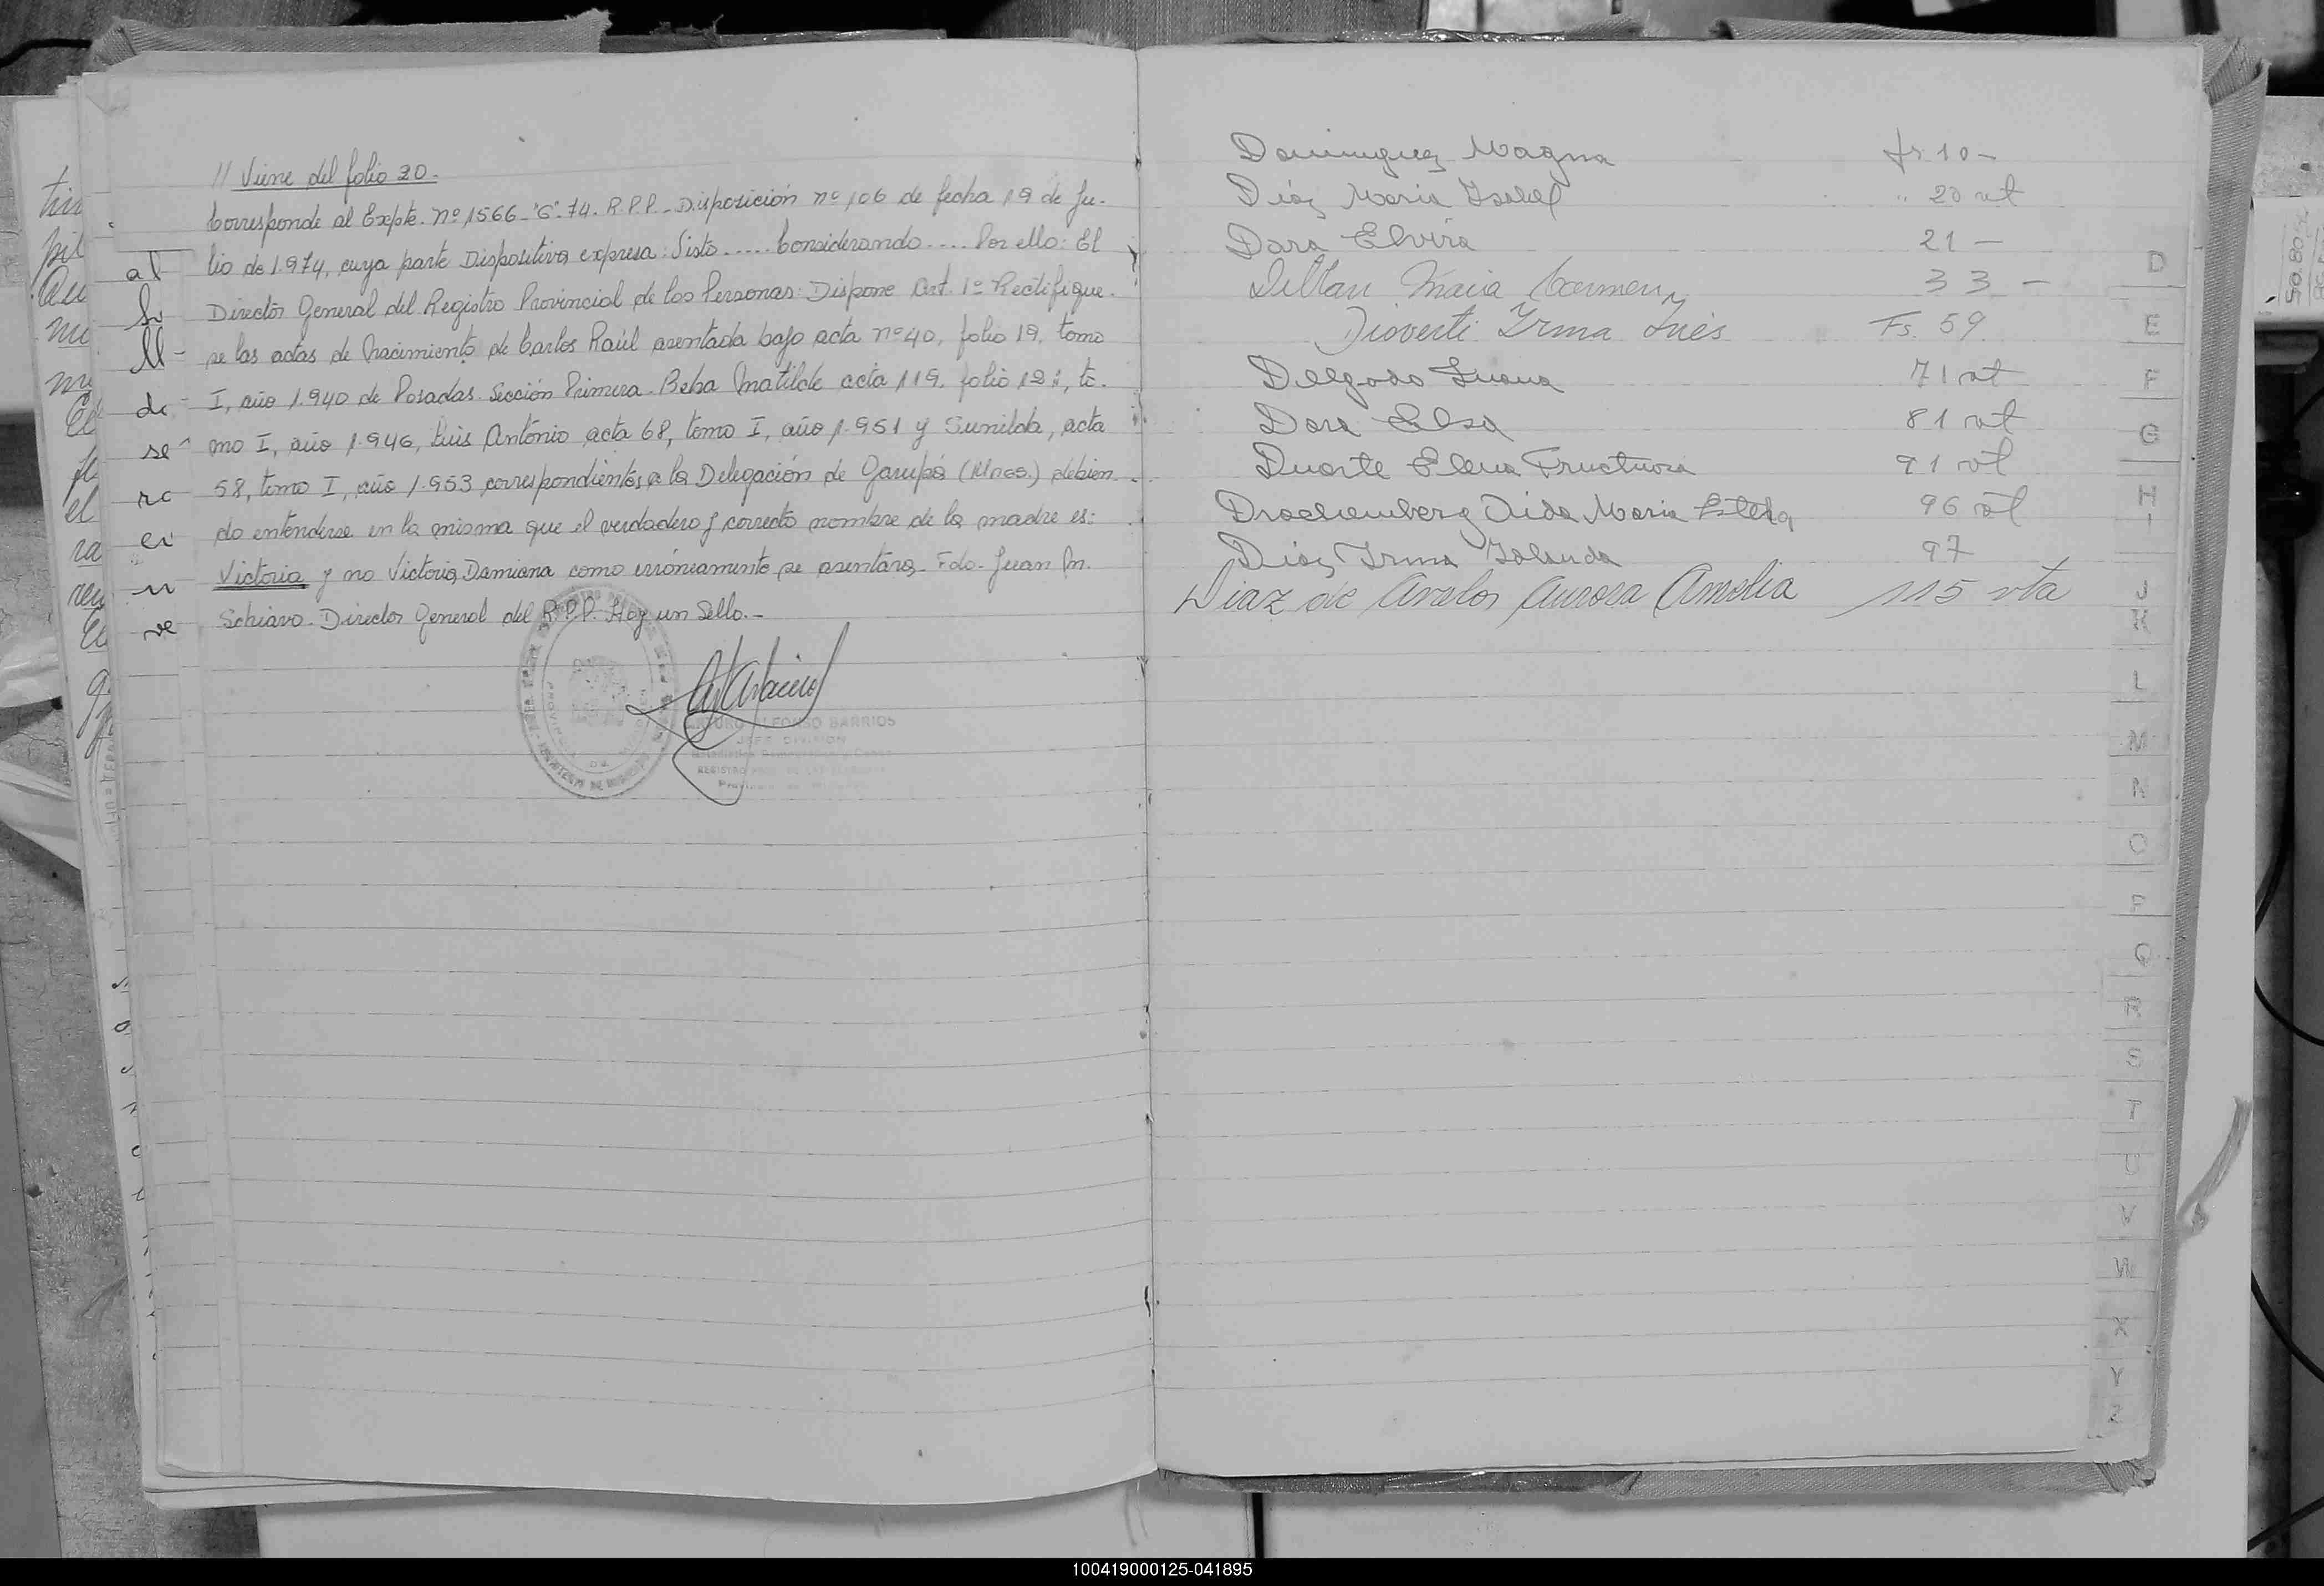 // Viene del folio 20.-
Corresponde al Expte. nº 1566-"G"-74. R.P.P.- Disposición nº 106 de fecha 19 de Ju-
lio de 1.974, cuya parte Dispositiva expresa: Visto..... Considerando.... Por ello: El
Director General del Registro Provincial de las Personas: Dispone Art. 1º Rectifique-
se las actas de Nacimiento de Carlos Raúl asentada bajo acta nº 40, folio 19, tomo
I, año 1.940 de Posadas Sección Primera. Beba Matilde acta 119, folio 121, to-
mo I, año 1.946, Luis Antonio acta 68, tomo I, año 1.951 y Sunilda, acta
58, tomo I, año 1.953 correspondientes a la Delegación de Garupá (Mnes.) debien-
do entenderse en la misma que el verdadero y correcto nombre de la madre es:
Victoria y no Victoria Damiana como erróneamente se asentara- Fdo- Juan M.
Schiavo- Director General del R.P.P. Hay un Sello.-
ARTURO ALFONSO BARRIOS
JEFE DIVISION
al
ll-
de-
se-
ve
Dominguez Magna fs. 10-
Diaz Maria Ysabel " 20 vt
Dara Elvira 21 -
Maria Carmen 33 -
Dioverti Irma Inés Fs. 59.
Delgado Juana 71 vt
Dara Elsa 81 vt
Duarte Elena Fructuosa 91 vt
Drachemberg Aida Maria Estela 96 vt
Diaz Irma Yolanda 97
Diaz de Avalos Aurora Amelia 115 vta
D
E
F
G
H
I
J
K
L
M
N
O
P
Q
R
S
T
U
V
W
X
Y
Z
100419000125-041895